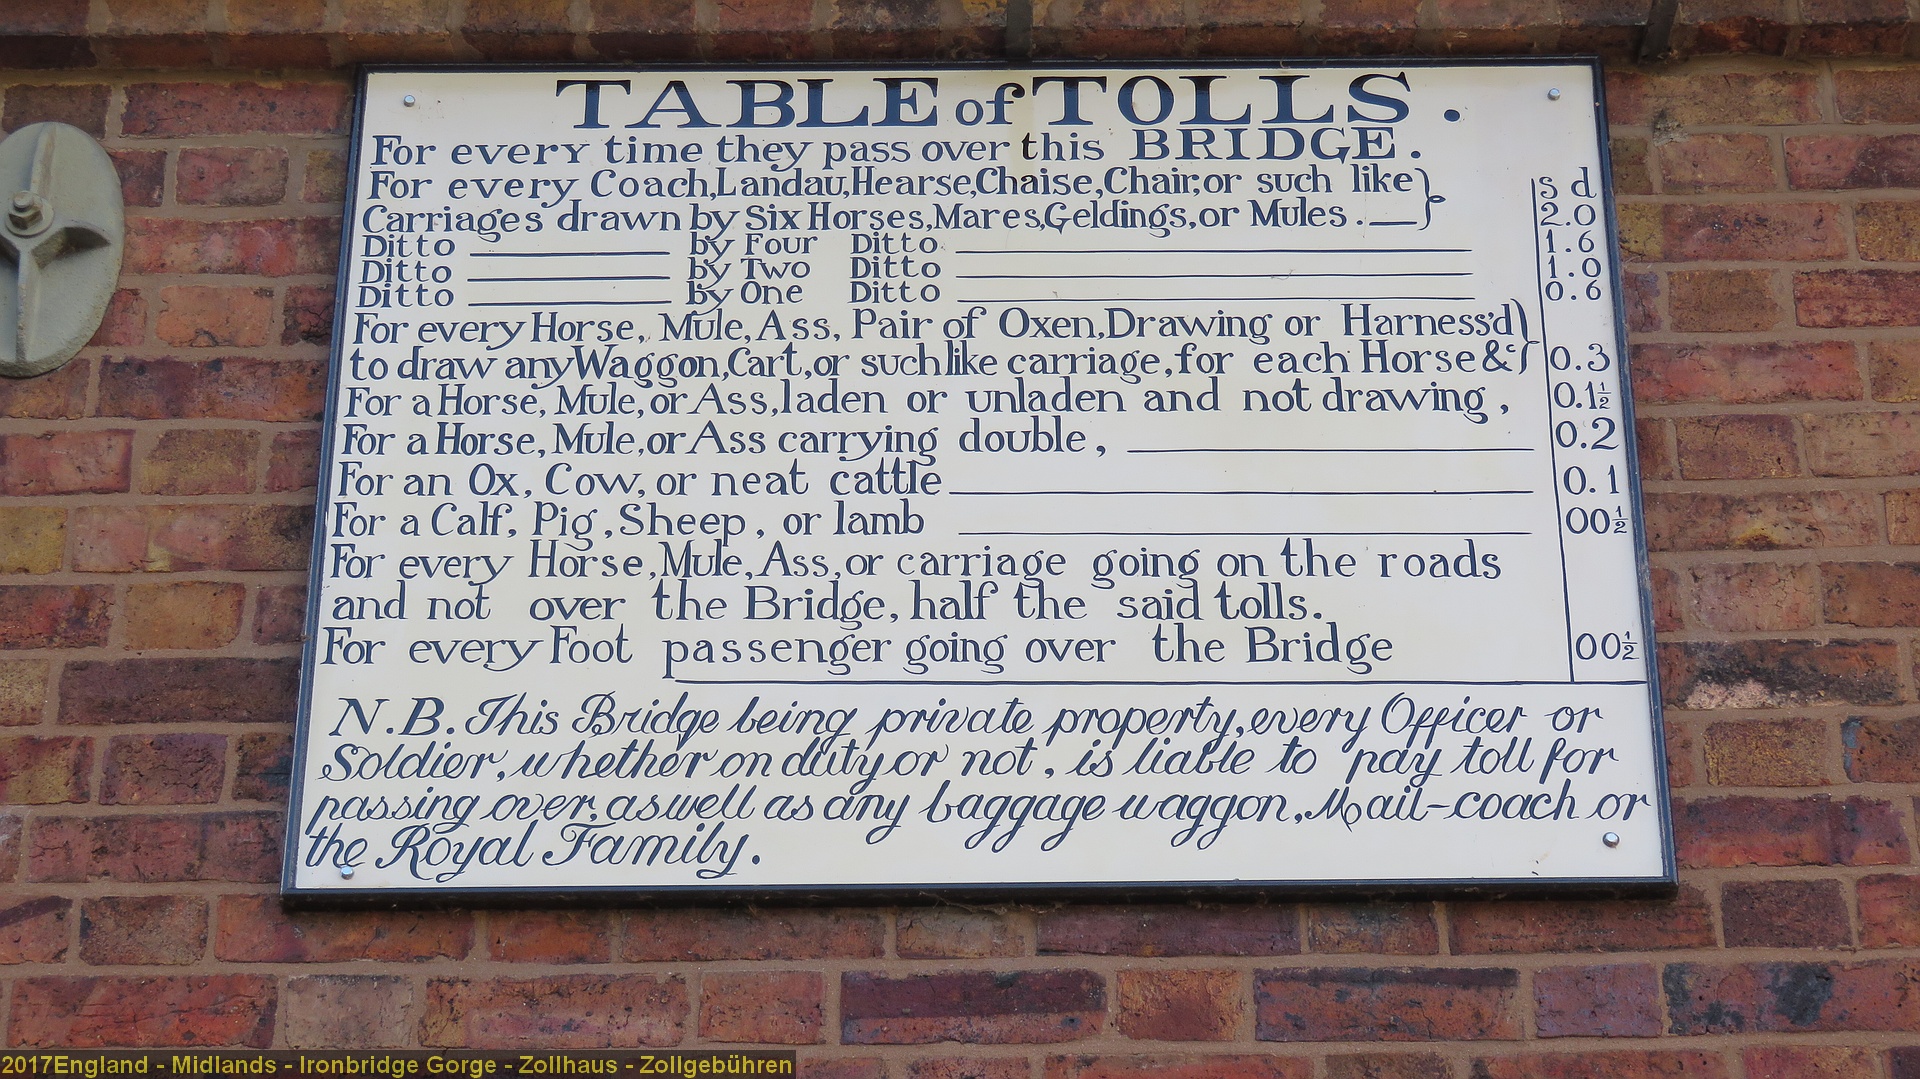 TABLE of TOLLS.
For every time they pass over this BRIDGE.
For every Coach, Landau, Hearse, Chaise, Chair, or such like s d
Carriages drawn by Six Horses, Mares, Geldings, or Mules. — 2.0
Ditto by Four Ditto 1.6
Ditto by Two Ditto 1.0
Ditto by One Ditto 0.6
For every Horse, Mule, Ass, Pair of Oxen, Drawing or Harness'd
to draw any Waggon, Cart, or such like carriage, for each Horse &c 0.3
For a Horse, Mule, or Ass, laden or unladen and not drawing, 0.1½
For a Horse, Mule, or Ass carrying double, 0.2
For an Ox, Cow, or neat cattle 0.1
For a Calf, Pig, Sheep, or lamb 00½
For every Horse, Mule, Ass, or carriage going on the roads
and not over the Bridge, half the said tolls.
For every Foot passenger going over the Bridge 00½
N.B. This Bridge being private property, every Officer or
Soldier, whether on duty or not, is liable to pay toll for
passing over, as well as any baggage waggon, Mail-coach or
the Royal Family.
2017England - Midlands - Ironbridge Gorge - Zollhaus - Zollgebühren